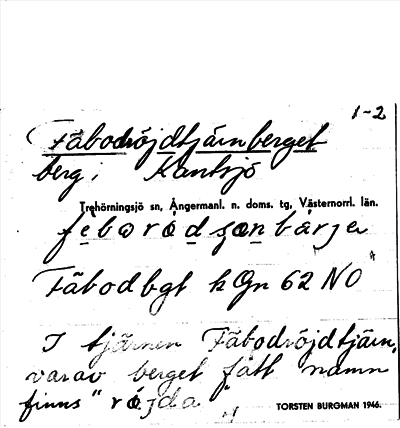 1-2
Fäbodröjdtjärnberget
berg i Kantsjö
Trehörningsjö sn, Ångermanl. n. doms. tg, Västernorrl. län.
Fäbodbgt kGn 62 NO
I tjärnen Fäbodröjdtjärn,
varav berget fått namn
finns "röjda"
TORSTEN BURGMAN 1946.